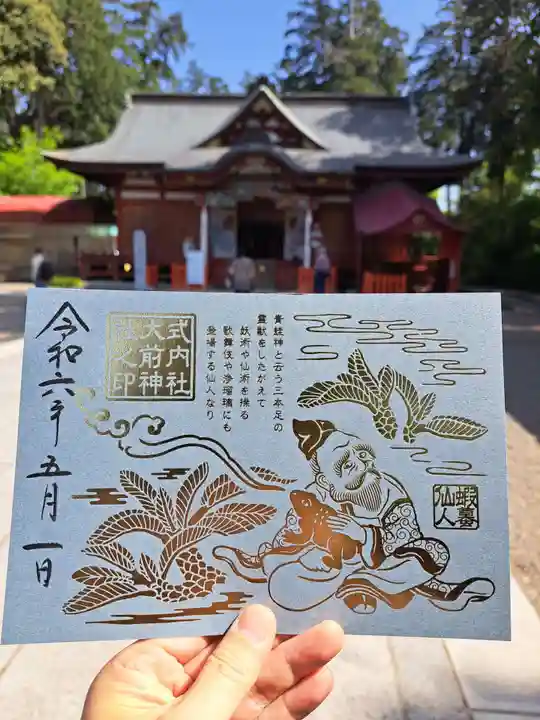 青蛙神と云う三本足の
霊獣をしたがえて
妖術や仙術を操る
歌舞伎や浄瑠璃にも
登場する仙人なり
式内社
大前神
社之印
令和六年五月一日
蝦蟇
仙人